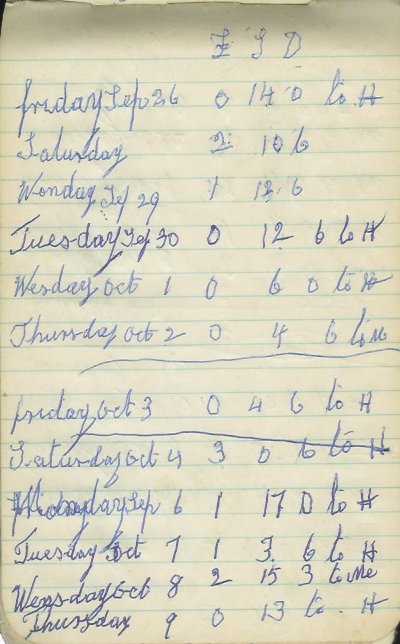 £ S D
friday Sep 26 0 14 0 to H
Saturday 2 10 6
Monday Sep 29 1 12 6
Tuesday Sep 30 0 12 6 to H
Wesday Oct 1 0 6 0 to H
Thursday Oct 2 0 4 6 to M
friday Oct 3 0 4 6 to H
Saturday Oct 4 3 0 6 to H
Monday Sep 6 1 17 0 to H
Tuesday Oct 7 1 3 6 to H
Wensday Oct 8 2 15 3 to Me
Thursday 9 0 13 to H